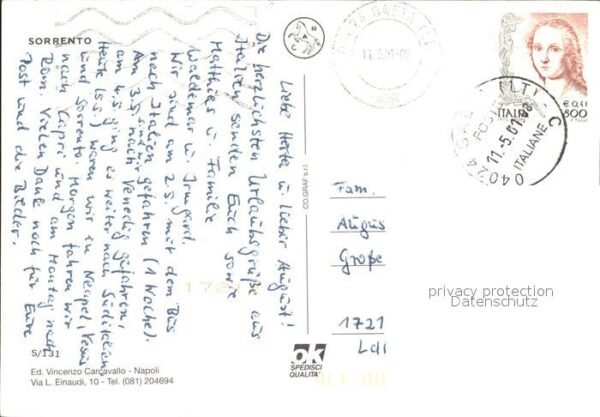 SORRENTO
Liebe Herta u. lieber August!
Die herzlichsten Urlaubsgrüße aus
Italien senden Euch sowie
Matthies u. Familie
Waldemar u. Irmgard.
Wir sind am 2.5. mit dem Bus
nach Italien gefahren (1 Woche).
Am 3.5. sind wir nach Venedig gefahren,
am 4.5. ging es weiter nach Süditalien
Heute (8.5.) waren wir in Neapel, Vesuv
und Sorrento. Morgen fahren wir
nach Capri und am Montag nach
Rom. Vielen Dank noch für Eure
Post und die Bilder.
S/131
Ed. Vincenzo Carcavallo - Napoli
Via L. Einaudi, 10 - Tel. (081) 204694
CO.GRAF s.r.l.
ok
SPEDISCI
QUALITA'
Fam.
Grope
1721
ITALIA
€ 0,41
800
11.5.01
POSTE ITALIANE
privacy protection
Datenschutz